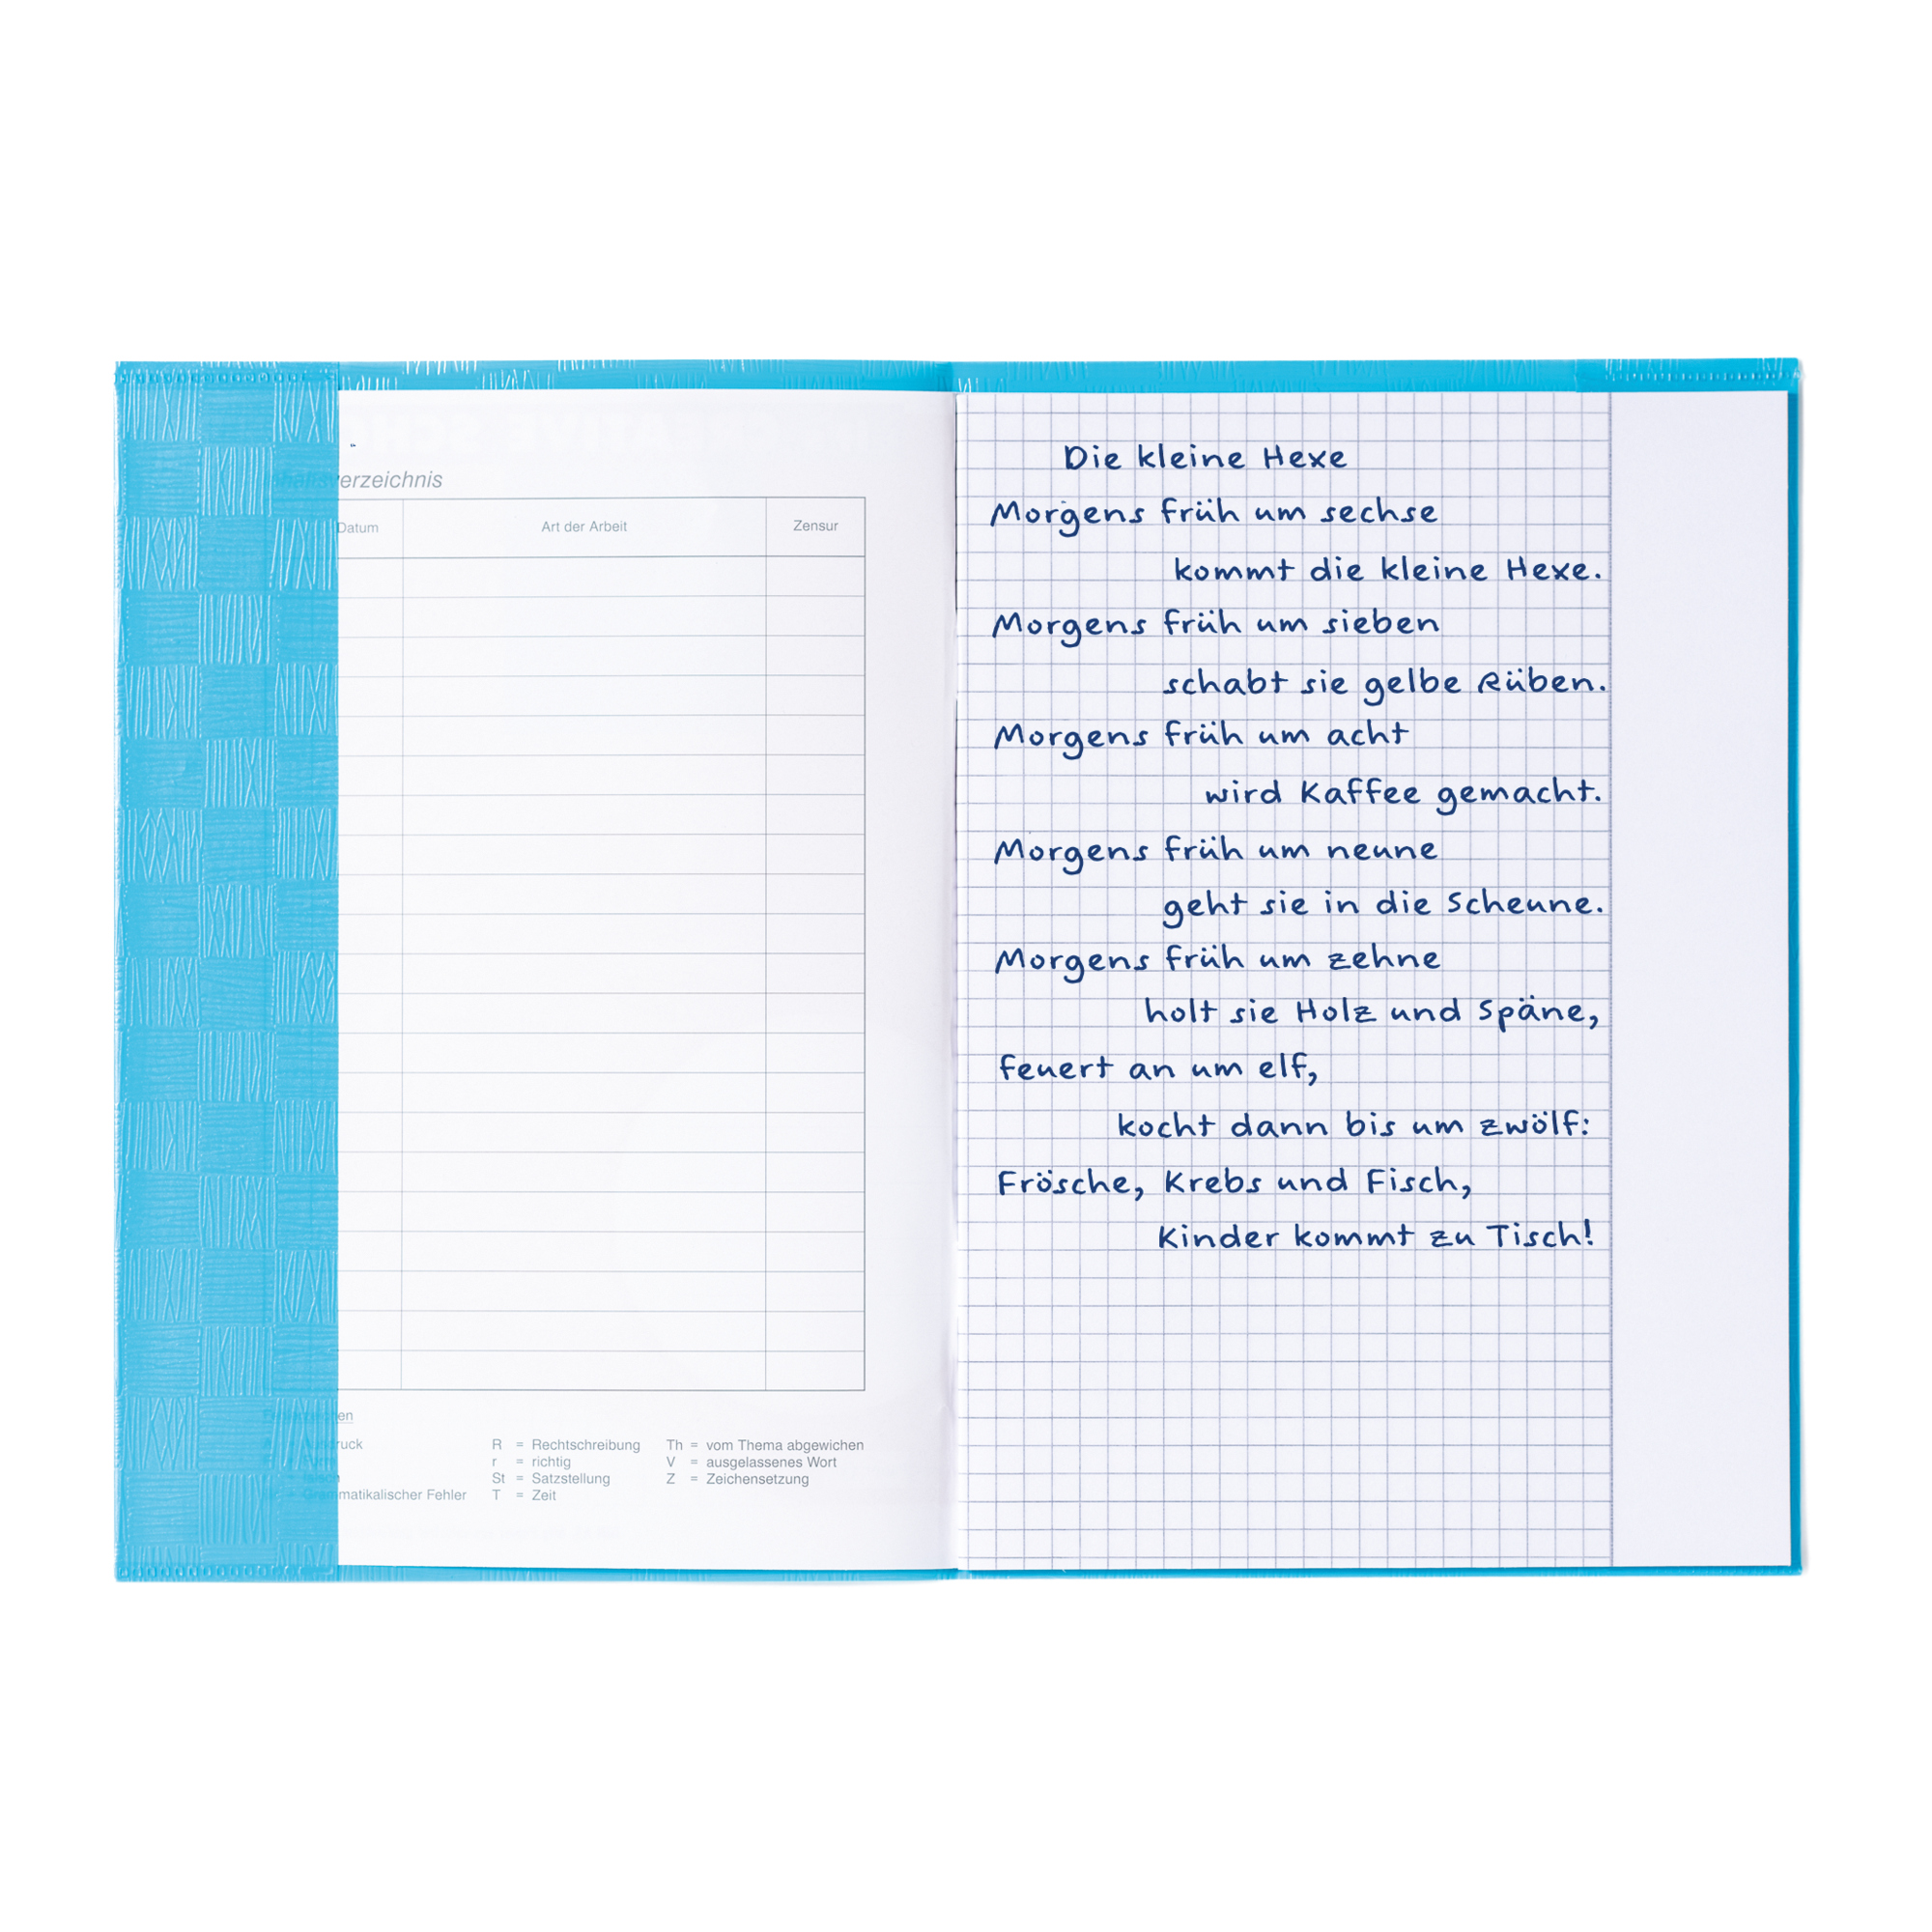 verzeichnis
Datum Art der Arbeit Zensur
R = Rechtschreibung Th = vom Thema abgewichen
r = richtig V = ausgelassenes Wort
St = Satzstellung Z = Zeichensetzung
Grammatikalischer Fehler T = Zeit
Die kleine Hexe
Morgens früh um sechse
kommt die kleine Hexe.
Morgens früh um sieben
schabt sie gelbe Rüben.
Morgens früh um acht
wird Kaffee gemacht.
Morgens früh um neune
geht sie in die Scheune.
Morgens früh um zehne
holt sie Holz und Späne,
feuert an um elf,
kocht dann bis um zwölf:
Frösche, Krebs und Fisch,
Kinder kommt zu Tisch!